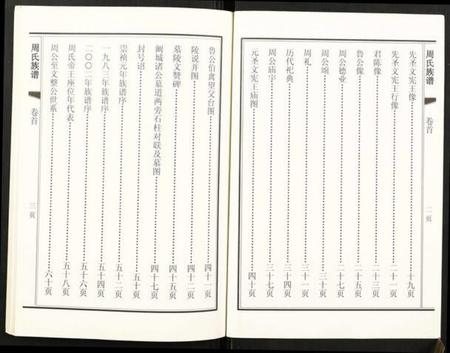 周氏族谱
卷首
二页
先圣文宪王像……十九页
先圣文宪王行像……二十一页
君陈像……二十三页
鲁公像……二十五页
周公德业……二十七页
周公颂……三十页
周礼……三十一页
历代祀典……三十四页
周公庙宇……三十七页
元圣文宪王庙图……四十页
鲁公伯禽望父台图……四十一页
陵说并图……四十二页
墓陵文赞碑……四十五页
阙城诸公墓道两旁石柱对联及墓图……四十七页
封号追……五十页
崇祯元年族谱序……五十二页
一九八三年族谱序……五十四页
二〇〇二年族谱序……五十六页
周氏帝王座位年代表……五十八页
周公至文整公世系……六十页
周氏族谱
卷首
三页